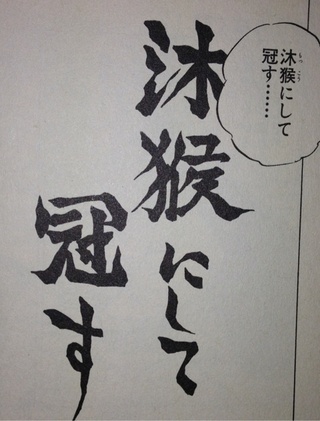 沐猴にして
冠す……
沐猴にして
冠す